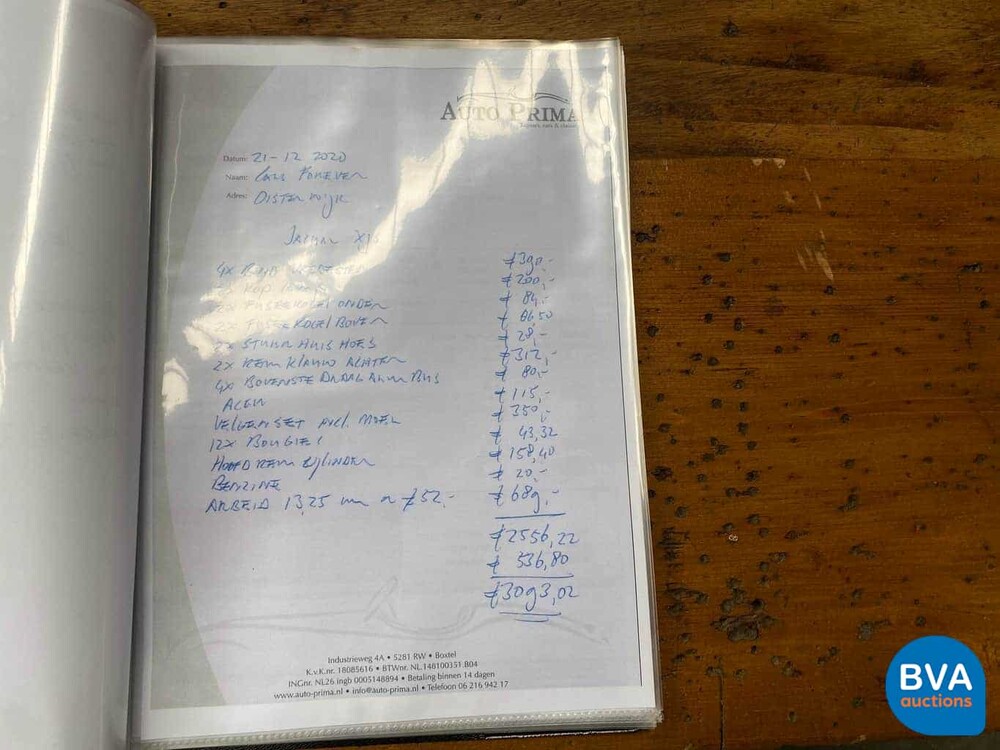 AUTO PRIMA
Datum: 21-12 2020
Naam: Cars Forever
Adres: Oisterwijk
Jaguar XJS
4x €390,-
€200,-
2x Fuseekogel onder €84,-
2x Fuseekogel boven €86,50
2x Stuurhuis hoes €28,-
2x Remklauw achter €312,-
4x Bovenste draagarm bus €80,-
€115,-
Velgenset incl. €350,-
12x Bougies €43,32
Hoofdremcilinder €158,40
Benzine €20,-
Arbeid 13,25 uur a €52,- €689,-
€2556,22
€536,80
€3093,02
Industrieweg 4A • 5281 RW • Boxtel
K.v.K.nr. 18085616 • BTWnr. NL.148100351.B04
INGnr. NL26 ingb 0005148894 • Betaling binnen 14 dagen
www.auto-prima.nl • info@auto-prima.nl • Telefoon 06 216 942 17
BVA
auctions